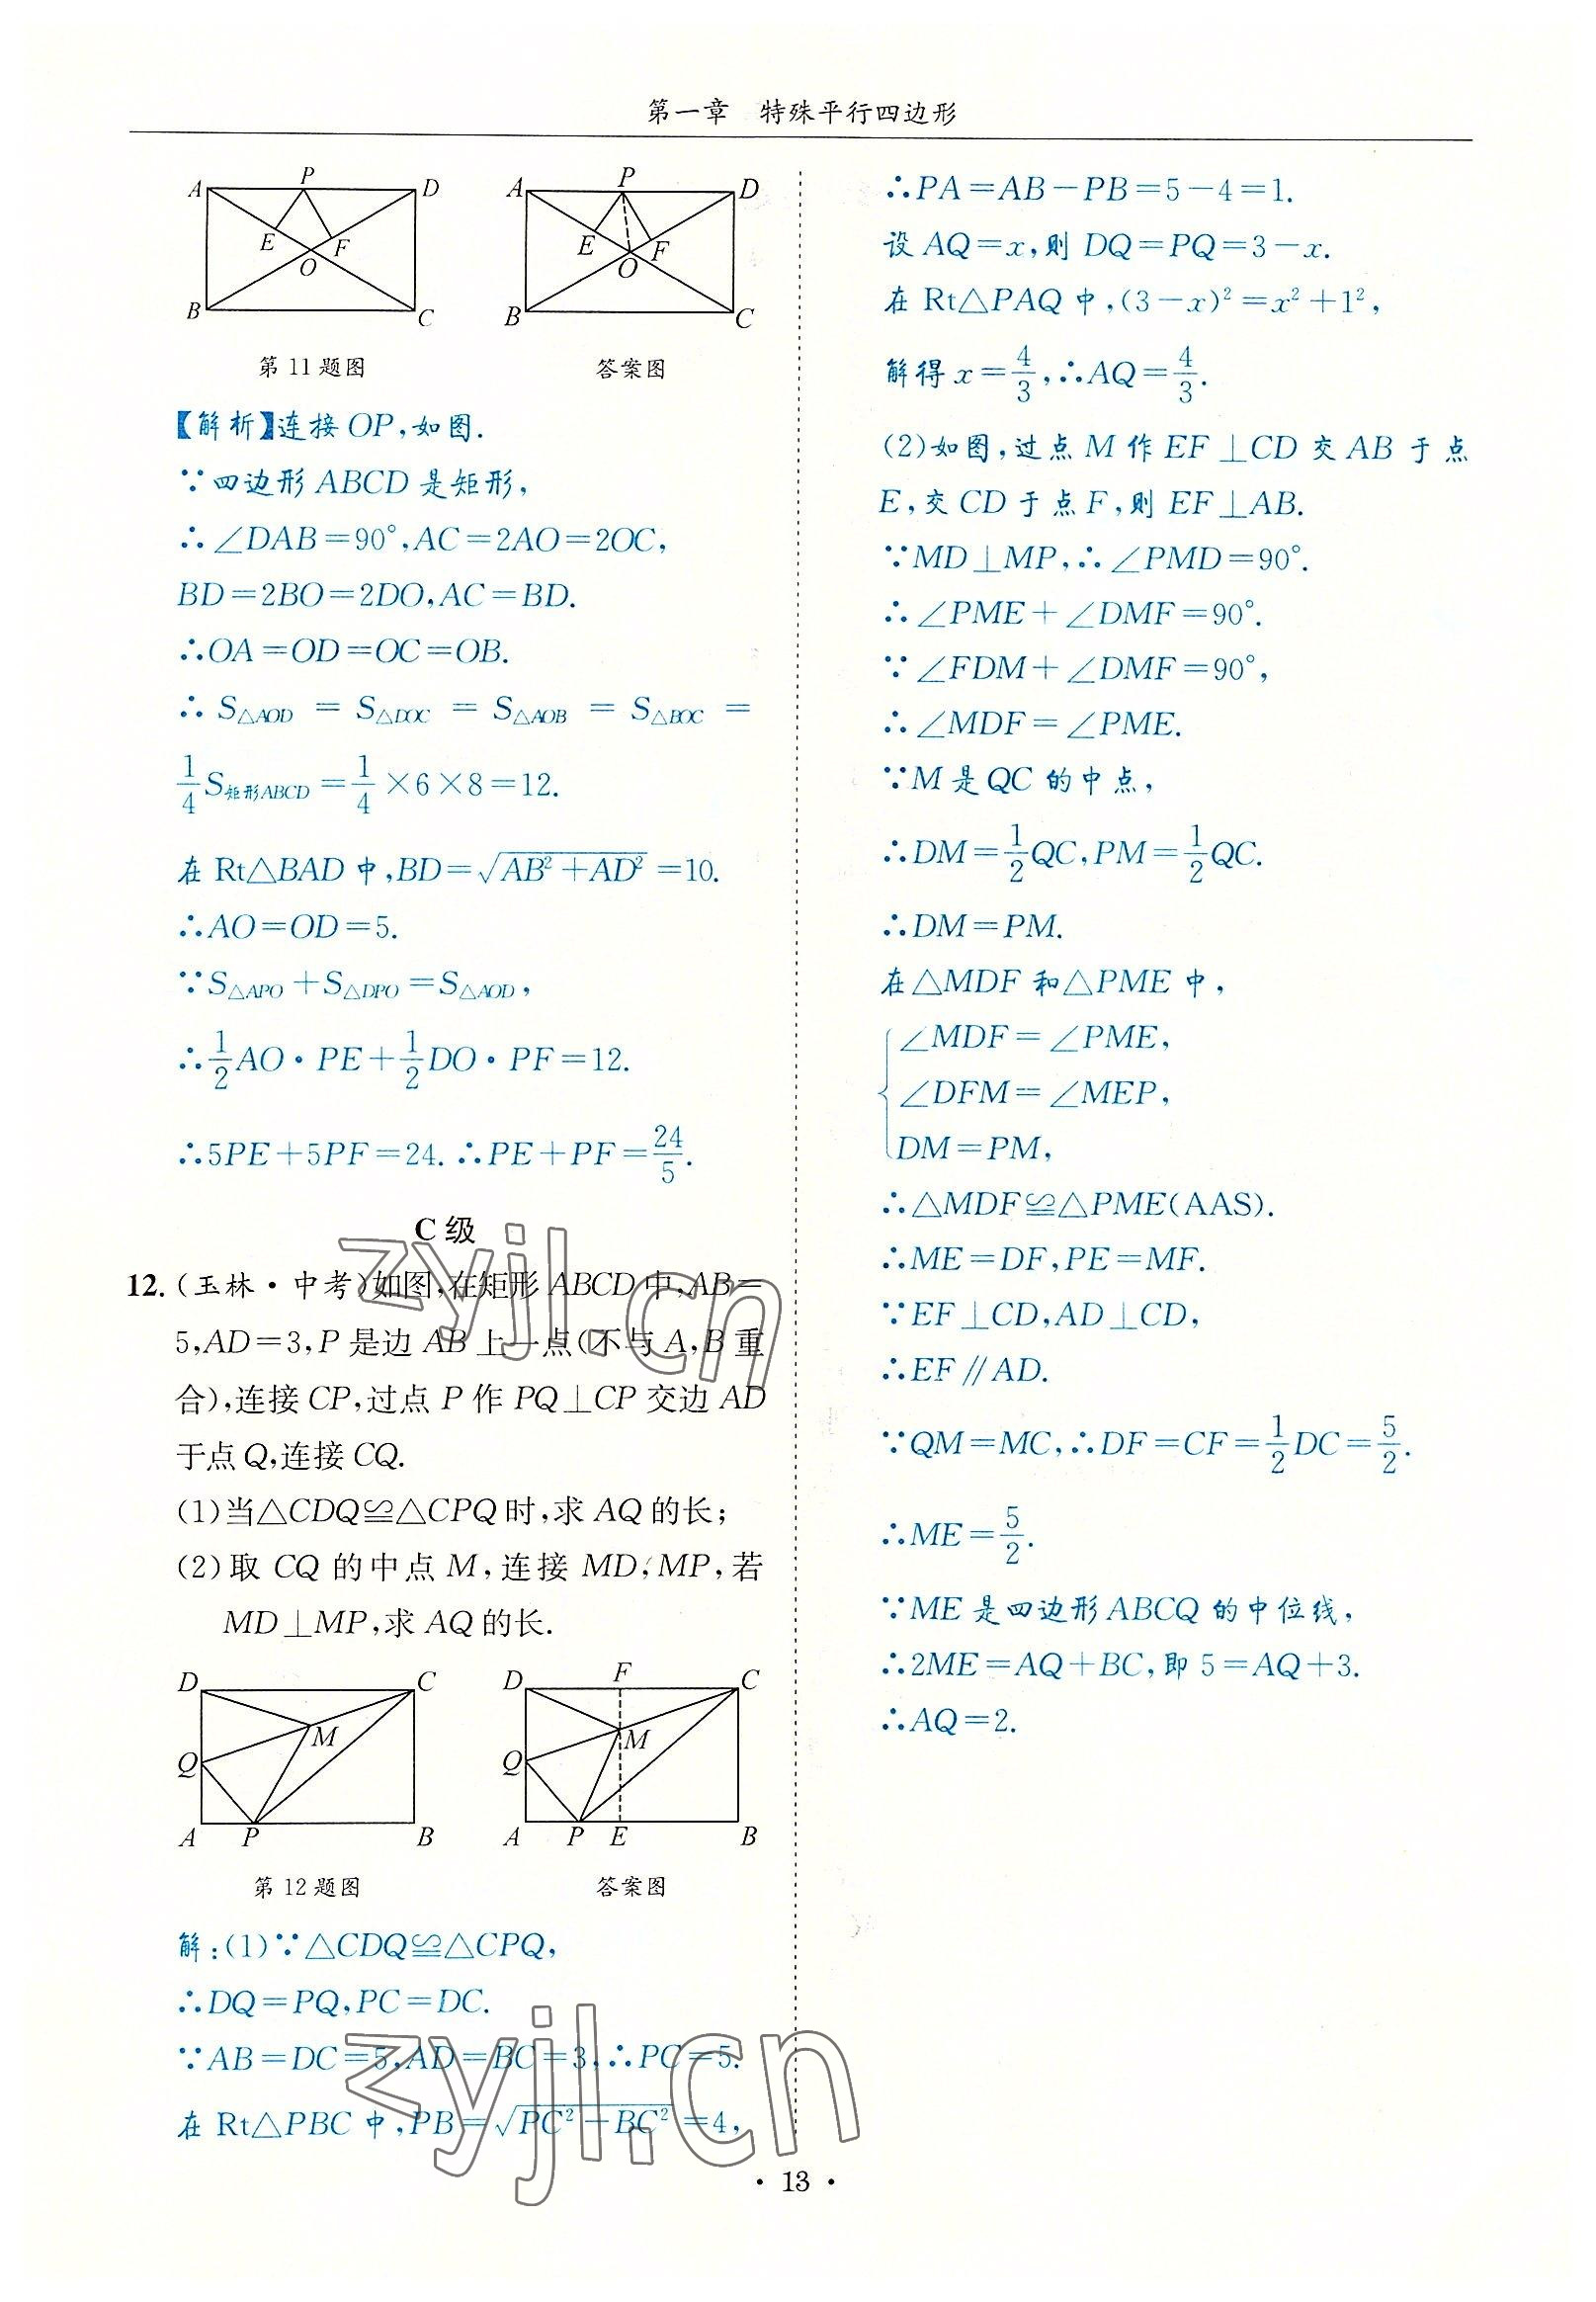 第一章 特殊平行四边形
A P D E F O B C
A P D E F O B C
第11题图 答案图
【解析】连接OP,如图.
∵四边形ABCD是矩形,
∴∠DAB=90°,AC=2AO=2OC,
BD=2BO=2DO,AC=BD.
∴OA=OD=OC=OB.
∴S△AOD=S△DOC=S△AOB=S△BOC=
1/4 S矩形ABCD=1/4×6×8=12.
在Rt△BAD中,BD=√(AB²+AD²)=10.
∴AO=OD=5.
∵S△APO+S△DPO=S△AOD,
∴1/2 AO·PE+1/2 DO·PF=12.
∴5PE+5PF=24.∴PE+PF=24/5.
C级
12.(玉林·中考)如图,在矩形ABCD中,AB=
5,AD=3,P是边AB上一点(不与A,B重
合),连接CP,过点P作PQ⊥CP交边AD
于点Q,连接CQ.
(1)当△CDQ≌△CPQ时,求AQ的长;
(2)取CQ的中点M,连接MD,MP,若
MD⊥MP,求AQ的长.
D C M Q A P B
D F C M Q A P E B
第12题图 答案图
解:(1)∵△CDQ≌△CPQ,
∴DQ=PQ,PC=DC.
∵AB=DC=5,AD=BC=3,∴PC=5.
在Rt△PBC中,PB=√(PC²-BC²)=4,
∴PA=AB-PB=5-4=1.
设AQ=x,则DQ=PQ=3-x.
在Rt△PAQ中,(3-x)²=x²+1²,
解得x=4/3,∴AQ=4/3.
(2)如图,过点M作EF⊥CD交AB于点
E,交CD于点F,则EF⊥AB.
∵MD⊥MP,∴∠PMD=90°.
∴∠PME+∠DMF=90°.
∵∠FDM+∠DMF=90°,
∴∠MDF=∠PME.
∵M是QC的中点,
∴DM=1/2 QC,PM=1/2 QC.
∴DM=PM.
在△MDF和△PME中,
{∠MDF=∠PME,
∠DFM=∠MEP,
DM=PM,
∴△MDF≌△PME(AAS).
∴ME=DF,PE=MF.
∵EF⊥CD,AD⊥CD,
∴EF∥AD.
∵QM=MC,∴DF=CF=1/2 DC=5/2.
∴ME=5/2.
∵ME是四边形ABCQ的中位线,
∴2ME=AQ+BC,即5=AQ+3.
∴AQ=2.
zyjl.cn
zyjl.cn
·13·